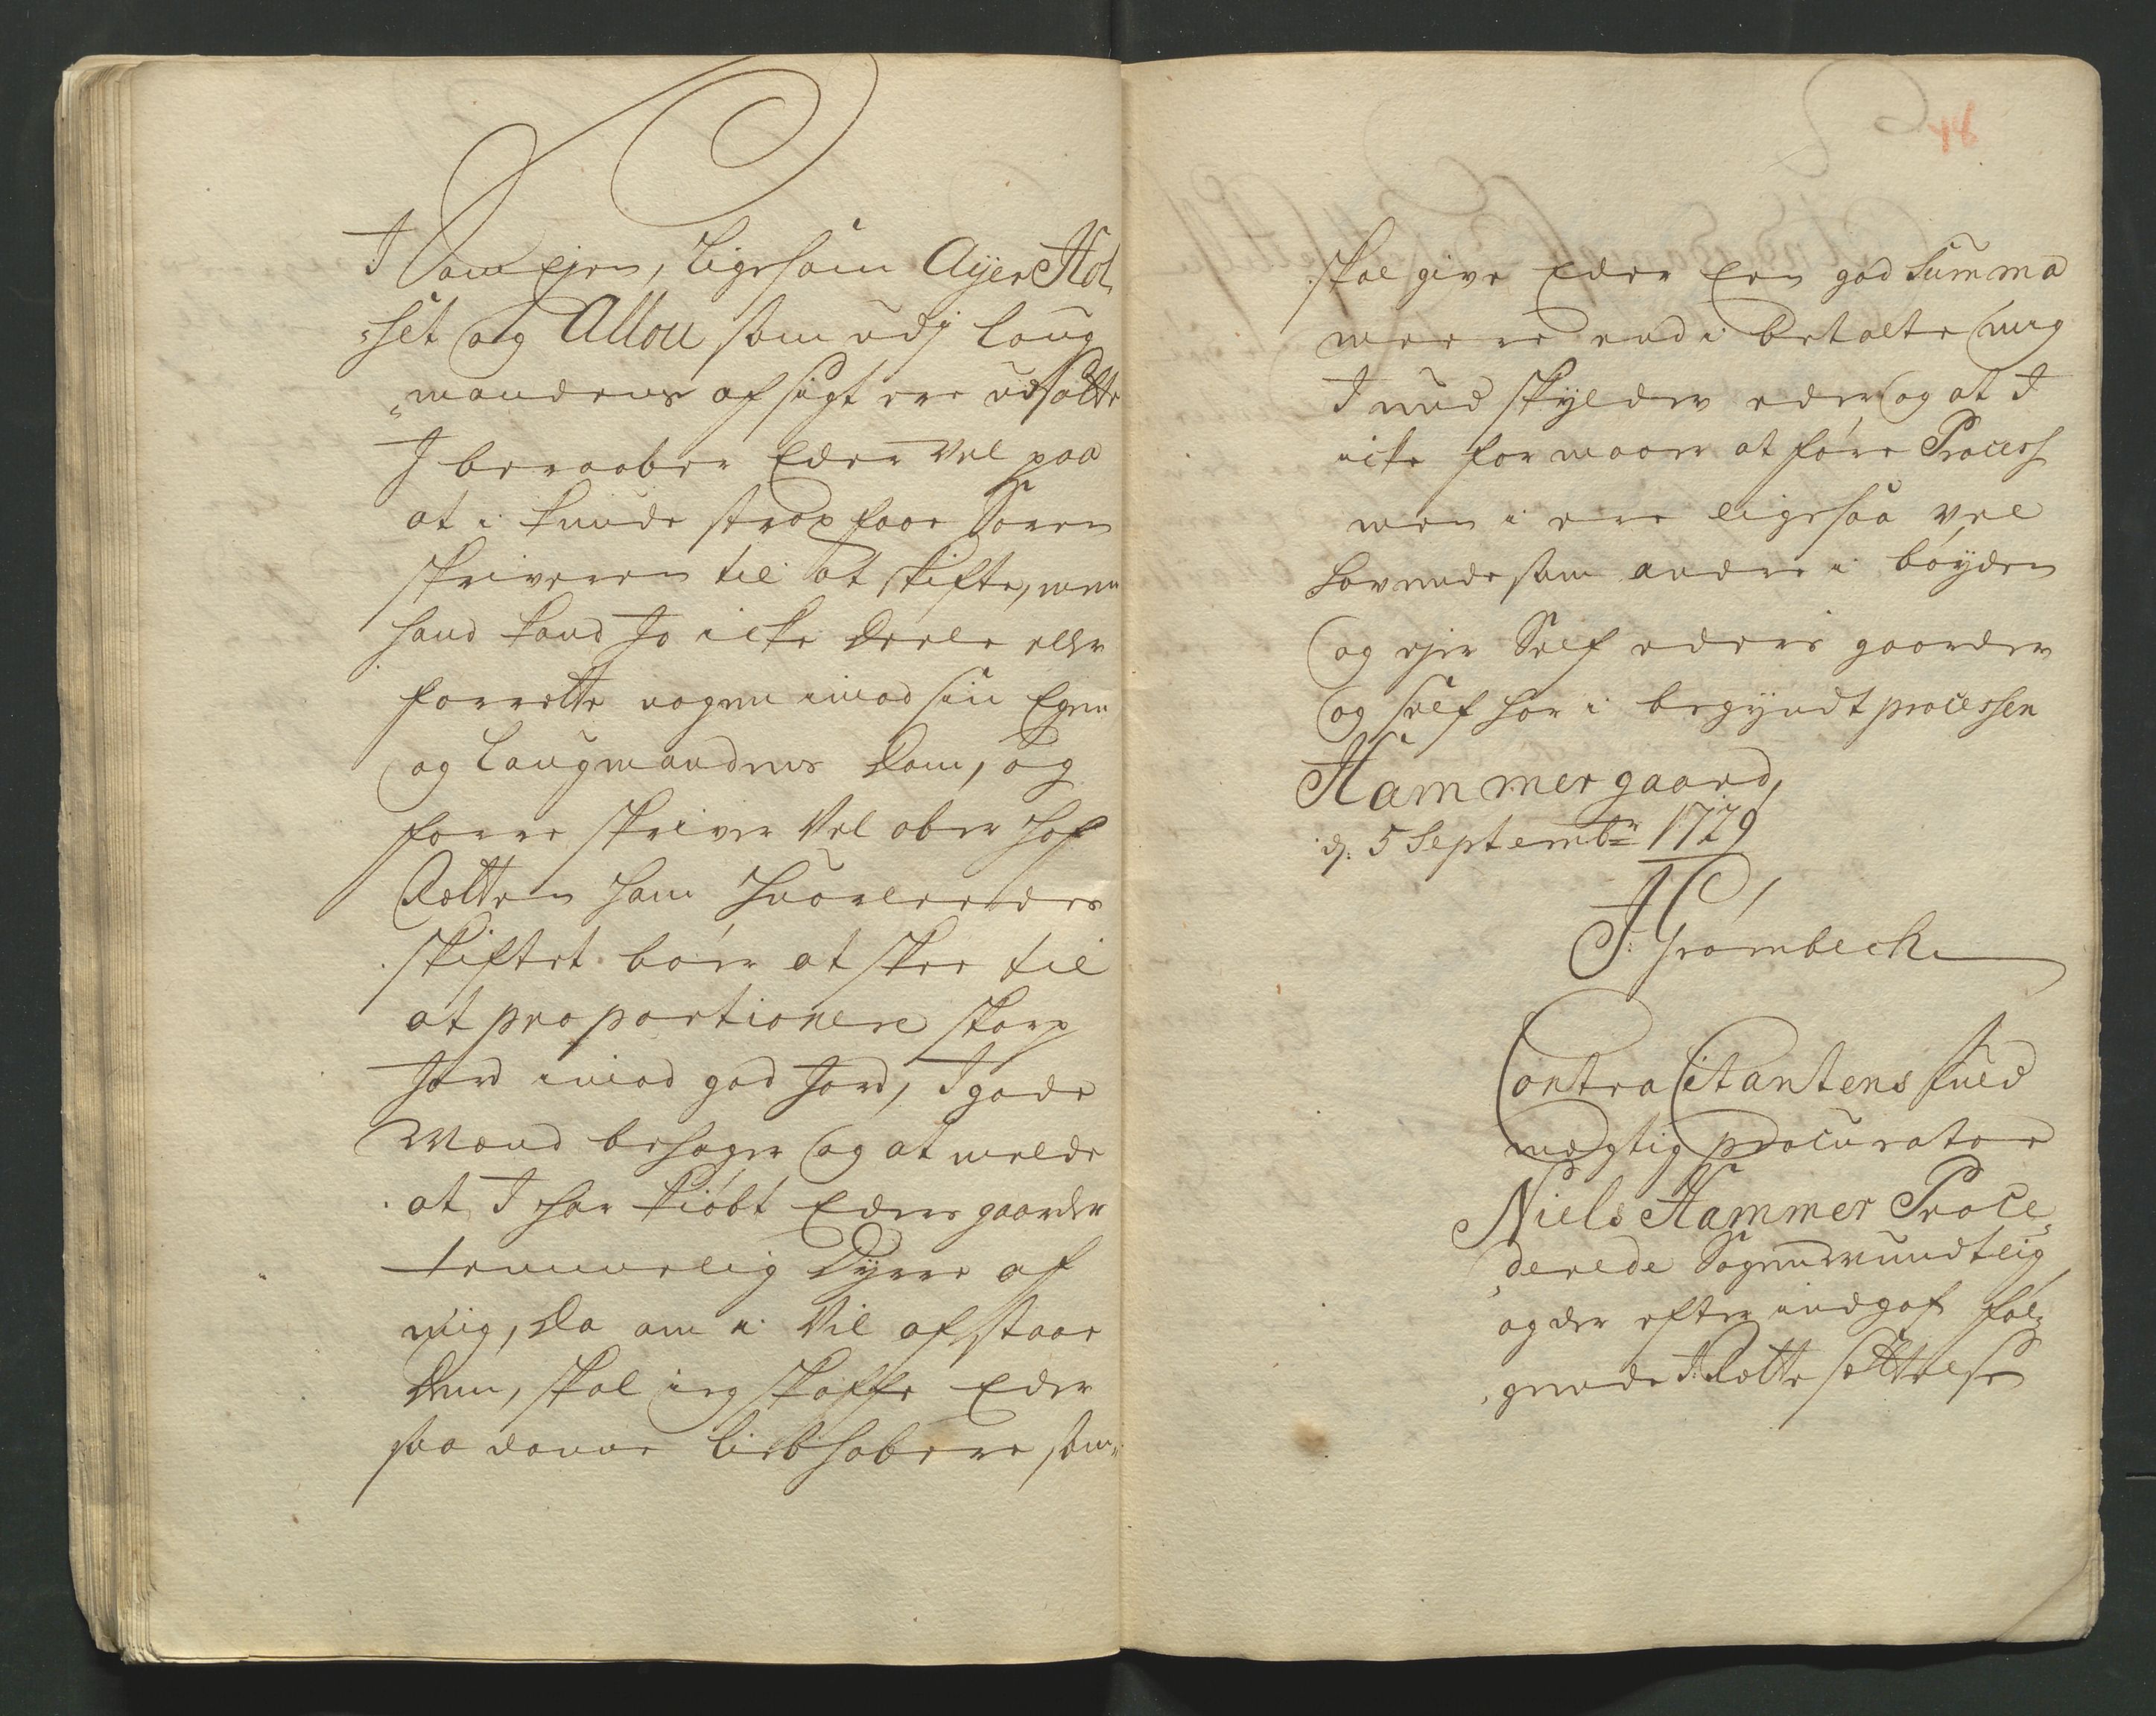 I Som Ejer, ligesom Ayer Hol
set og Allou som udj laug
mandens afsigt ere udsatte
I beraaber Eder vel paa
at i kunde strax faae Soren
skriveren til at skifte, men
hand kand Jo icke deele eller
forrette nogen imod sin Egen
og Laugmandens Dom, og
forre skriver vel ober Hof
Retten ham huorleedes
skiftet bør at skee til
at proportionere skarp
Jord imod god Jord, I gode
Mænd behager og at melde
at I har kiøbt Eders gaarder
temmelig Dyrre af
mig, da om i vil afstaae
dem, skal ieg skaffe Eder
saa danne liebhabere som
18
skal give Eder Een god Summa
meere end i betalte mig
I und skylder eder og at I
icke formaaer at føre Process
men i ere ligesaa vel
havende som andre i bøyden
og ejer Self eders gaarder
og self har i begyndt processen
Hammergaard,
d: 5 Septembr 1729
H: Grambech
Contra Citantens fuld
mægtig procurator
Niels Hammer Proce
derede Sagen mundtlig
og der efter indgaf føl
gende I Rette settelse